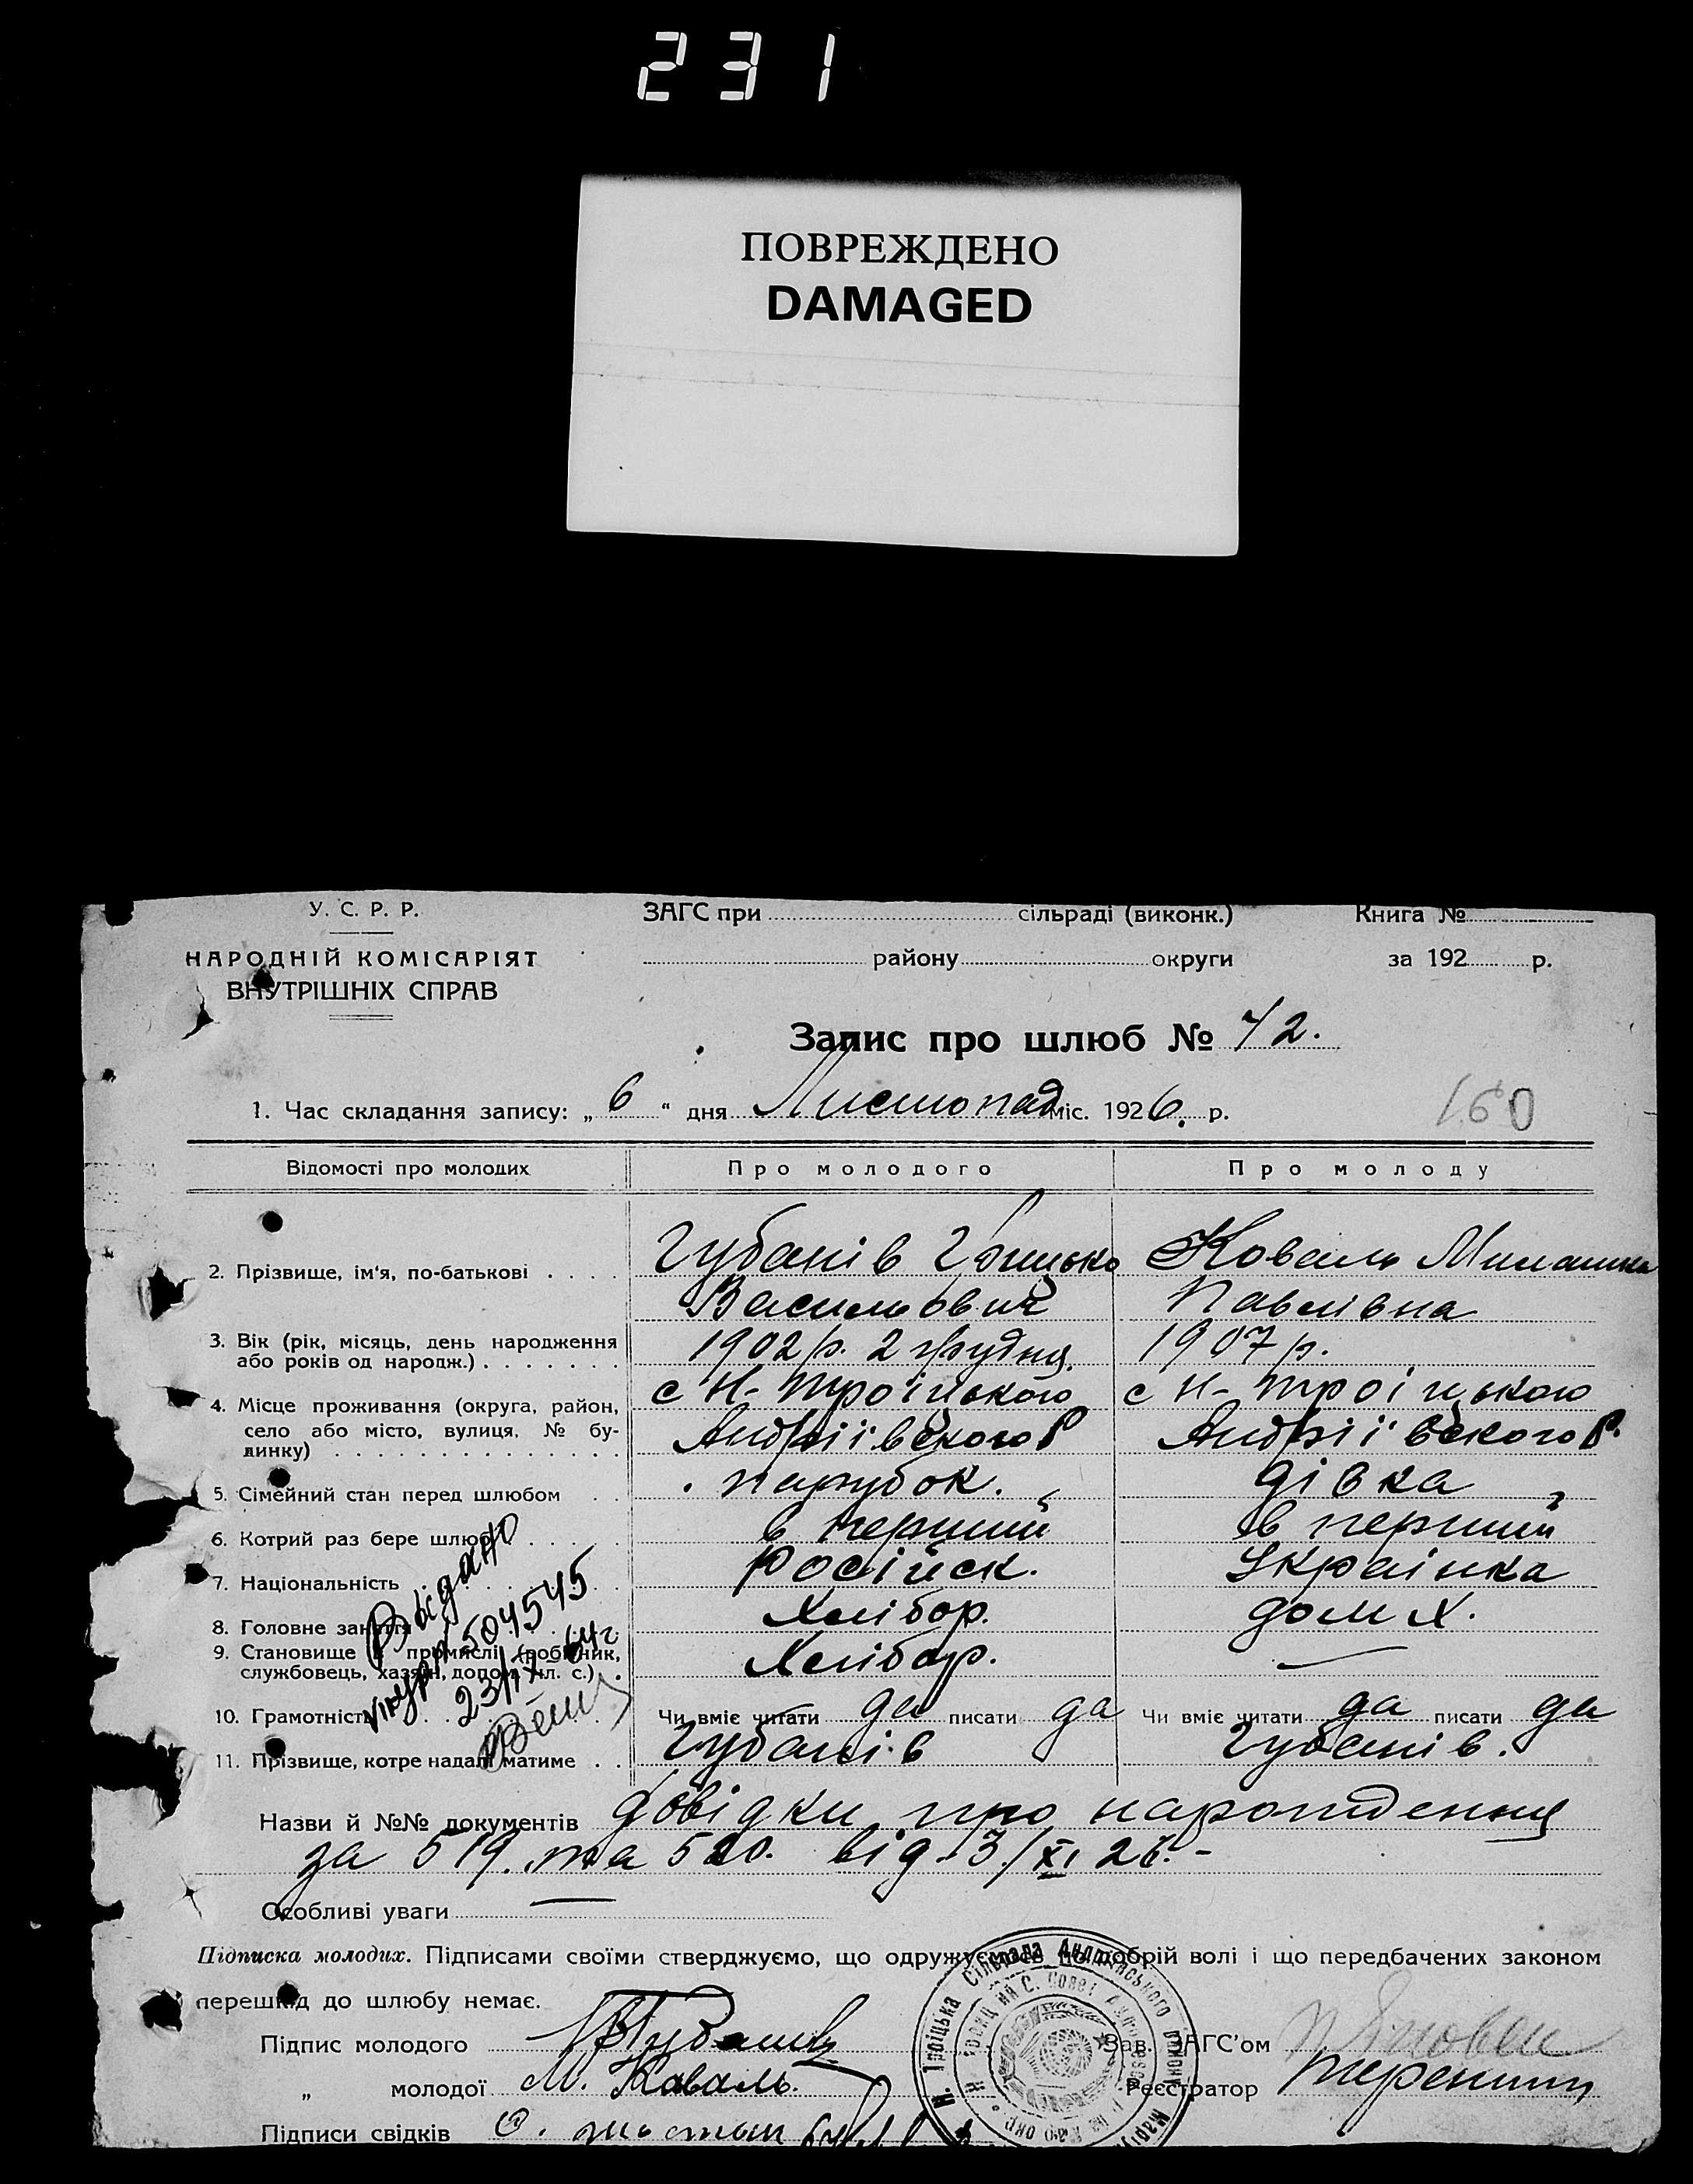 231
ПОВРЕЖДЕНО
DAMAGED
У. С. Р. Р.
НАРОДНІЙ КОМІСАРІЯТ
ВНУТРІШНІХ СПРАВ
ЗАГС при сільраді (виконк.) Книга №
району округи за 192 р.
Запис про шлюб № 72.
1. Час складання запису: „6“ дня Листопад міс. 1926. р.
160
Відомості про молодих Про молодого Про молоду
2. Прізвище, ім'я, по-батькові . . . . Губанів Грицько Коваль
Васильович Павлівна
3. Вік (рік, місяць, день народження 1902 р. 2 грудня. 1907 р.
або років од народж.) . . . . . . .
4. Місце проживання (округа, район, с Н-Троіцького с Н-Троіцького
село або місто, вулиця, № бу- Андріівского Р Андріівского Р.
динку) . . . . . . . . . . . . .
5. Сімейний стан перед шлюбом . . парубок. дівка
6. Котрий раз бере шлюб . . . . . в перший в перший
7. Національність Російск. Украінка
8. Головне заняття Хлібор. дом х.
9. Становище в промислі (робітник, Хлібор. —
службовець, хазяїн, допом. чл. с.) .
10. Грамотність . . . Чи вміє читати да писати да Чи вміє читати да писати да
11. Прізвище, котре надалі матиме . . Губанів Губанів.
Видано
504545
23/IX 64 г
Назви й №№ документів довідки про нарождення
за 519. та 520. від 3/XI 26. -
Особливі уваги —
Підписка молодих. Підписами своїми стверджуємо, що одружуємось по добрій волі і що передбачених законом
перешкод до шлюбу немає.
Підпис молодого Губанів Зав. ЗАГС'ом
„ молодої М. Коваль. Реєстратор
Підписи свідків
Н. Троїцька Сільрада Андріївського району